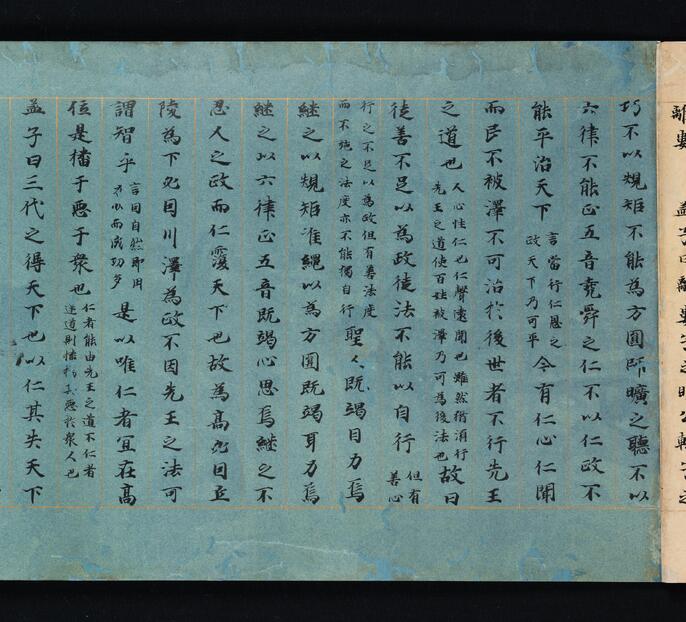 離婁　孟子曰離婁子之明公輸子之
巧不以規矩不能為方圓師曠之聽不以
六律不能正五音堯舜之仁不以仁政不
能平治天下言當行仁恩之政天下乃可平今有仁心仁聞
而民不被澤不可治於後世者不行先王
之道也人心性仁也仁聲遠聞也雖然猶須行先王之道使百姓被澤乃可為後法也故曰
徒善不足以為政徒法不能以自行但有善心
行之不足以為政但有善法度而不施之法度亦不能獨自行聖人既竭目力焉
継之以規矩准繩以為方圓既竭耳力焉
継之以六律正五音既竭心思焉継之不
忍人之政而仁覆天下也故為高必因丘
陵為下必因川澤為政不因先王之法可
謂智乎言因自然即用力少而成功多是以唯仁者宜在高
位是播于惡于衆也仁者能由先王之道不仁者逆道則播揚其惡於衆人也
孟子曰三代之得天下也以仁其失天下